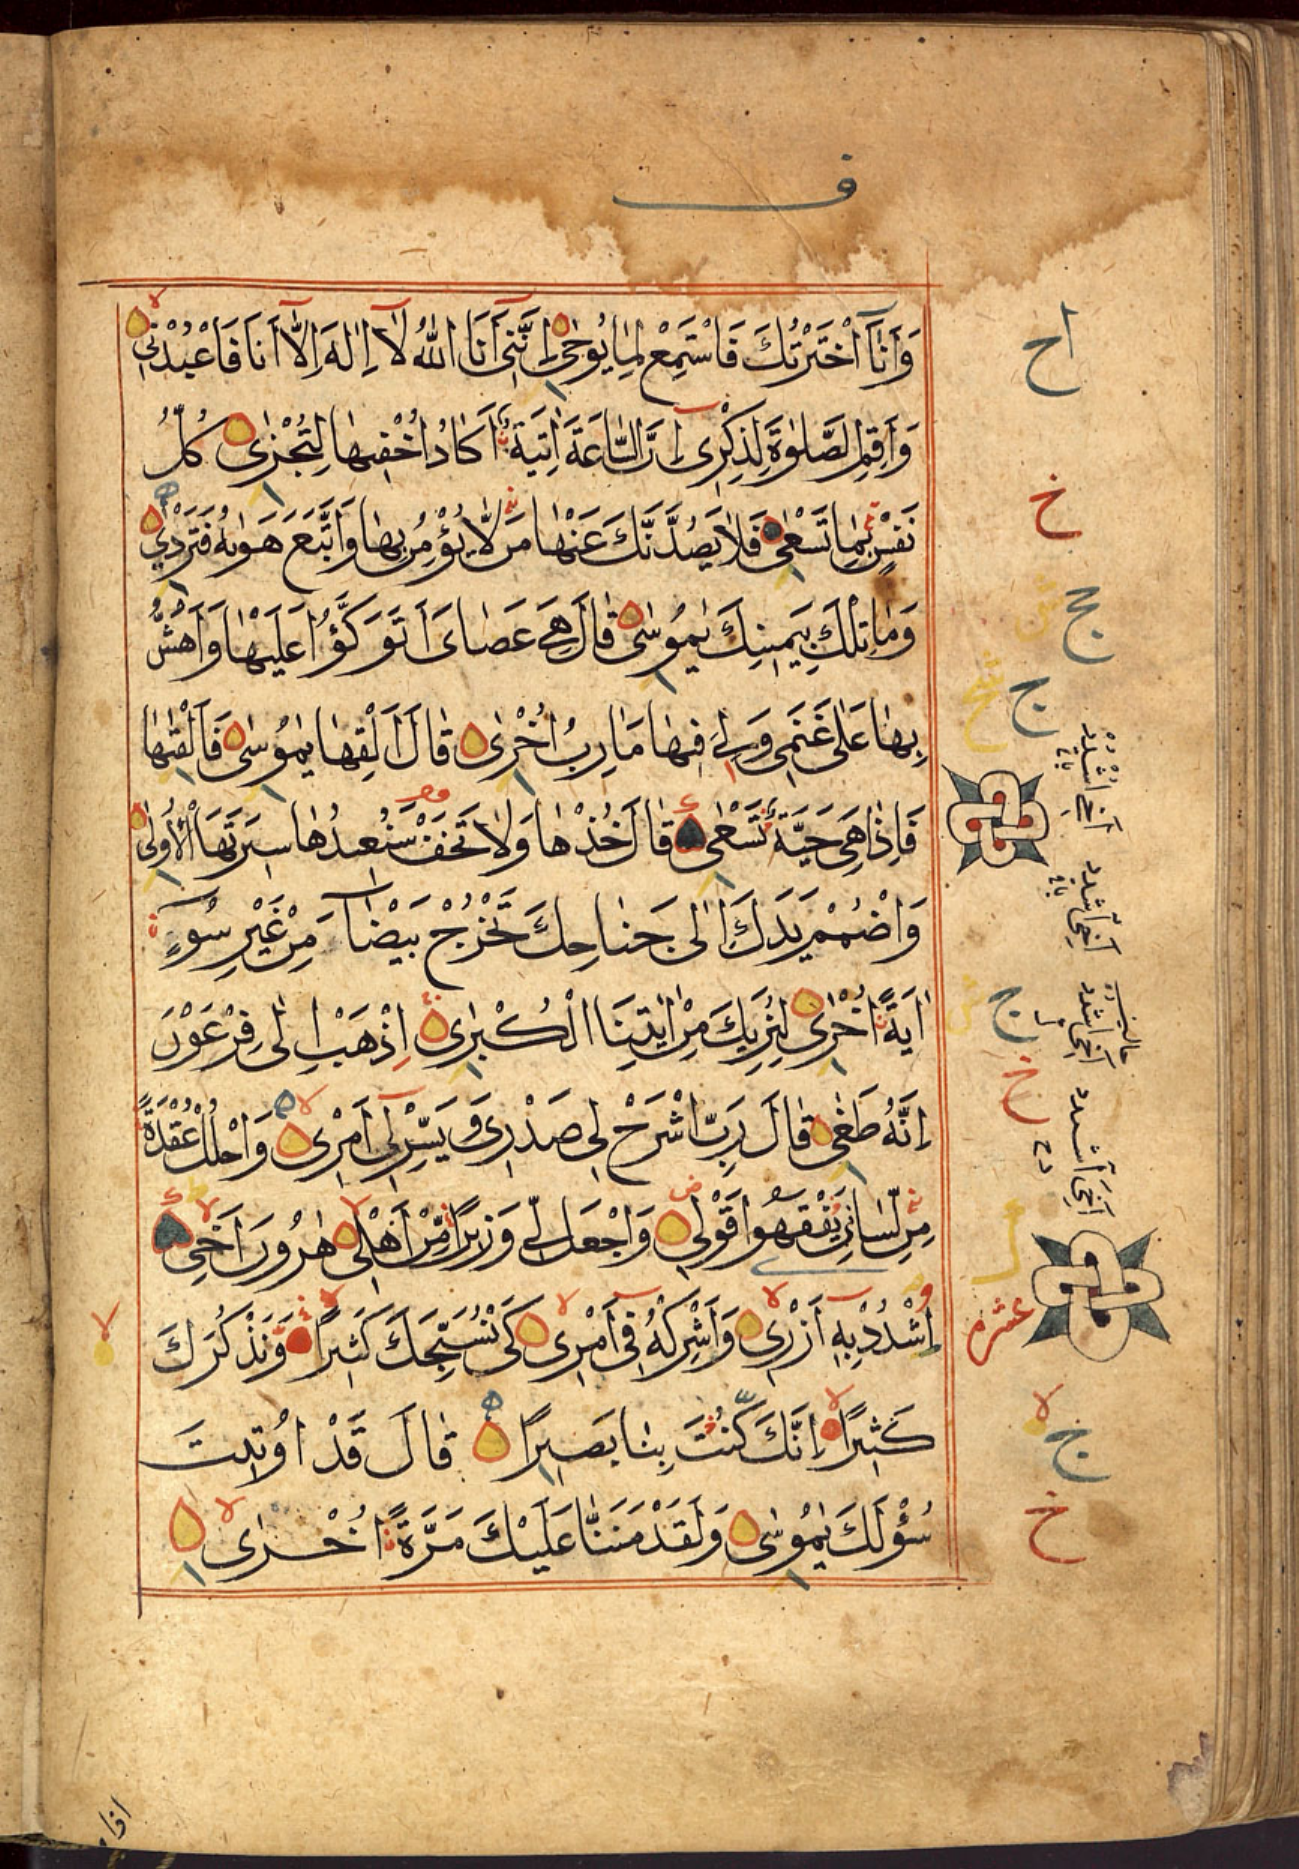 ف
وَأَنَا اخْتَرْتُكَ فَاسْتَمِعْ لِمَا يُوحٰى إِنَّنِى أَنَا اللّٰهُ لَا إِلٰهَ إِلَّا أَنَا فَاعْبُدْنِى
وَأَقِمِ الصَّلٰوةَ لِذِكْرِى إِنَّ السَّاعَةَ اٰتِيَةٌ أَكَادُ أُخْفِيهَا لِتُجْزٰى كُلُّ
نَفْسٍ بِمَا تَسْعٰى فَلَا يَصُدَّنَّكَ عَنْهَا مَنْ لَا يُؤْمِنُ بِهَا وَاتَّبَعَ هَوٰىهُ فَتَرْدٰى
وَمَا تِلْكَ بِيَمِينِكَ يٰمُوسٰى قَالَ هِيَ عَصَاىَ أَتَوَكَّؤُا عَلَيْهَا وَأَهُشُّ
بِهَا عَلٰى غَنَمِى وَلِيَ فِيهَا مَاٰرِبُ أُخْرٰى قَالَ أَلْقِهَا يٰمُوسٰى فَأَلْقٰىهَا
فَإِذَا هِىَ حَيَّةٌ تَسْعٰى قَالَ خُذْهَا وَلَا تَخَفْ سَنُعِيدُهَا سِيرَتَهَا الْأُولٰى
وَاضْمُمْ يَدَكَ إِلٰى جَنَاحِكَ تَخْرُجْ بَيْضَآءَ مِنْ غَيْرِ سُوٓءٍ
اٰيَةً أُخْرٰى لِنُرِيَكَ مِنْ اٰيٰتِنَا الْكُبْرٰى اِذْهَبْ إِلٰى فِرْعَوْنَ
إِنَّهُ طَغٰى قَالَ رَبِّ اشْرَحْ لِى صَدْرِى وَيَسِّرْ لِى أَمْرِى وَاحْلُلْ عُقْدَةً
مِنْ لِسَانِى يَفْقَهُوا قَوْلِى وَاجْعَلْ لِى وَزِيرًا مِنْ أَهْلِى هٰرُونَ أَخِى
اشْدُدْ بِهِ أَزْرِى وَأَشْرِكْهُ فِى أَمْرِى كَىْ نُسَبِّحَكَ كَثِيرًا وَنَذْكُرَكَ
كَثِيرًا إِنَّكَ كُنْتَ بِنَا بَصِيرًا قَالَ قَدْ أُوتِيتَ
سُؤْلَكَ يٰمُوسٰى وَلَقَدْ مَنَنَّا عَلَيْكَ مَرَّةً أُخْرٰى
اح
خ
ج
ج
أخى اشدد
أخى اشدد
ج
أخى اشدد
خ
أخى اشدد
عشر
ج
خ